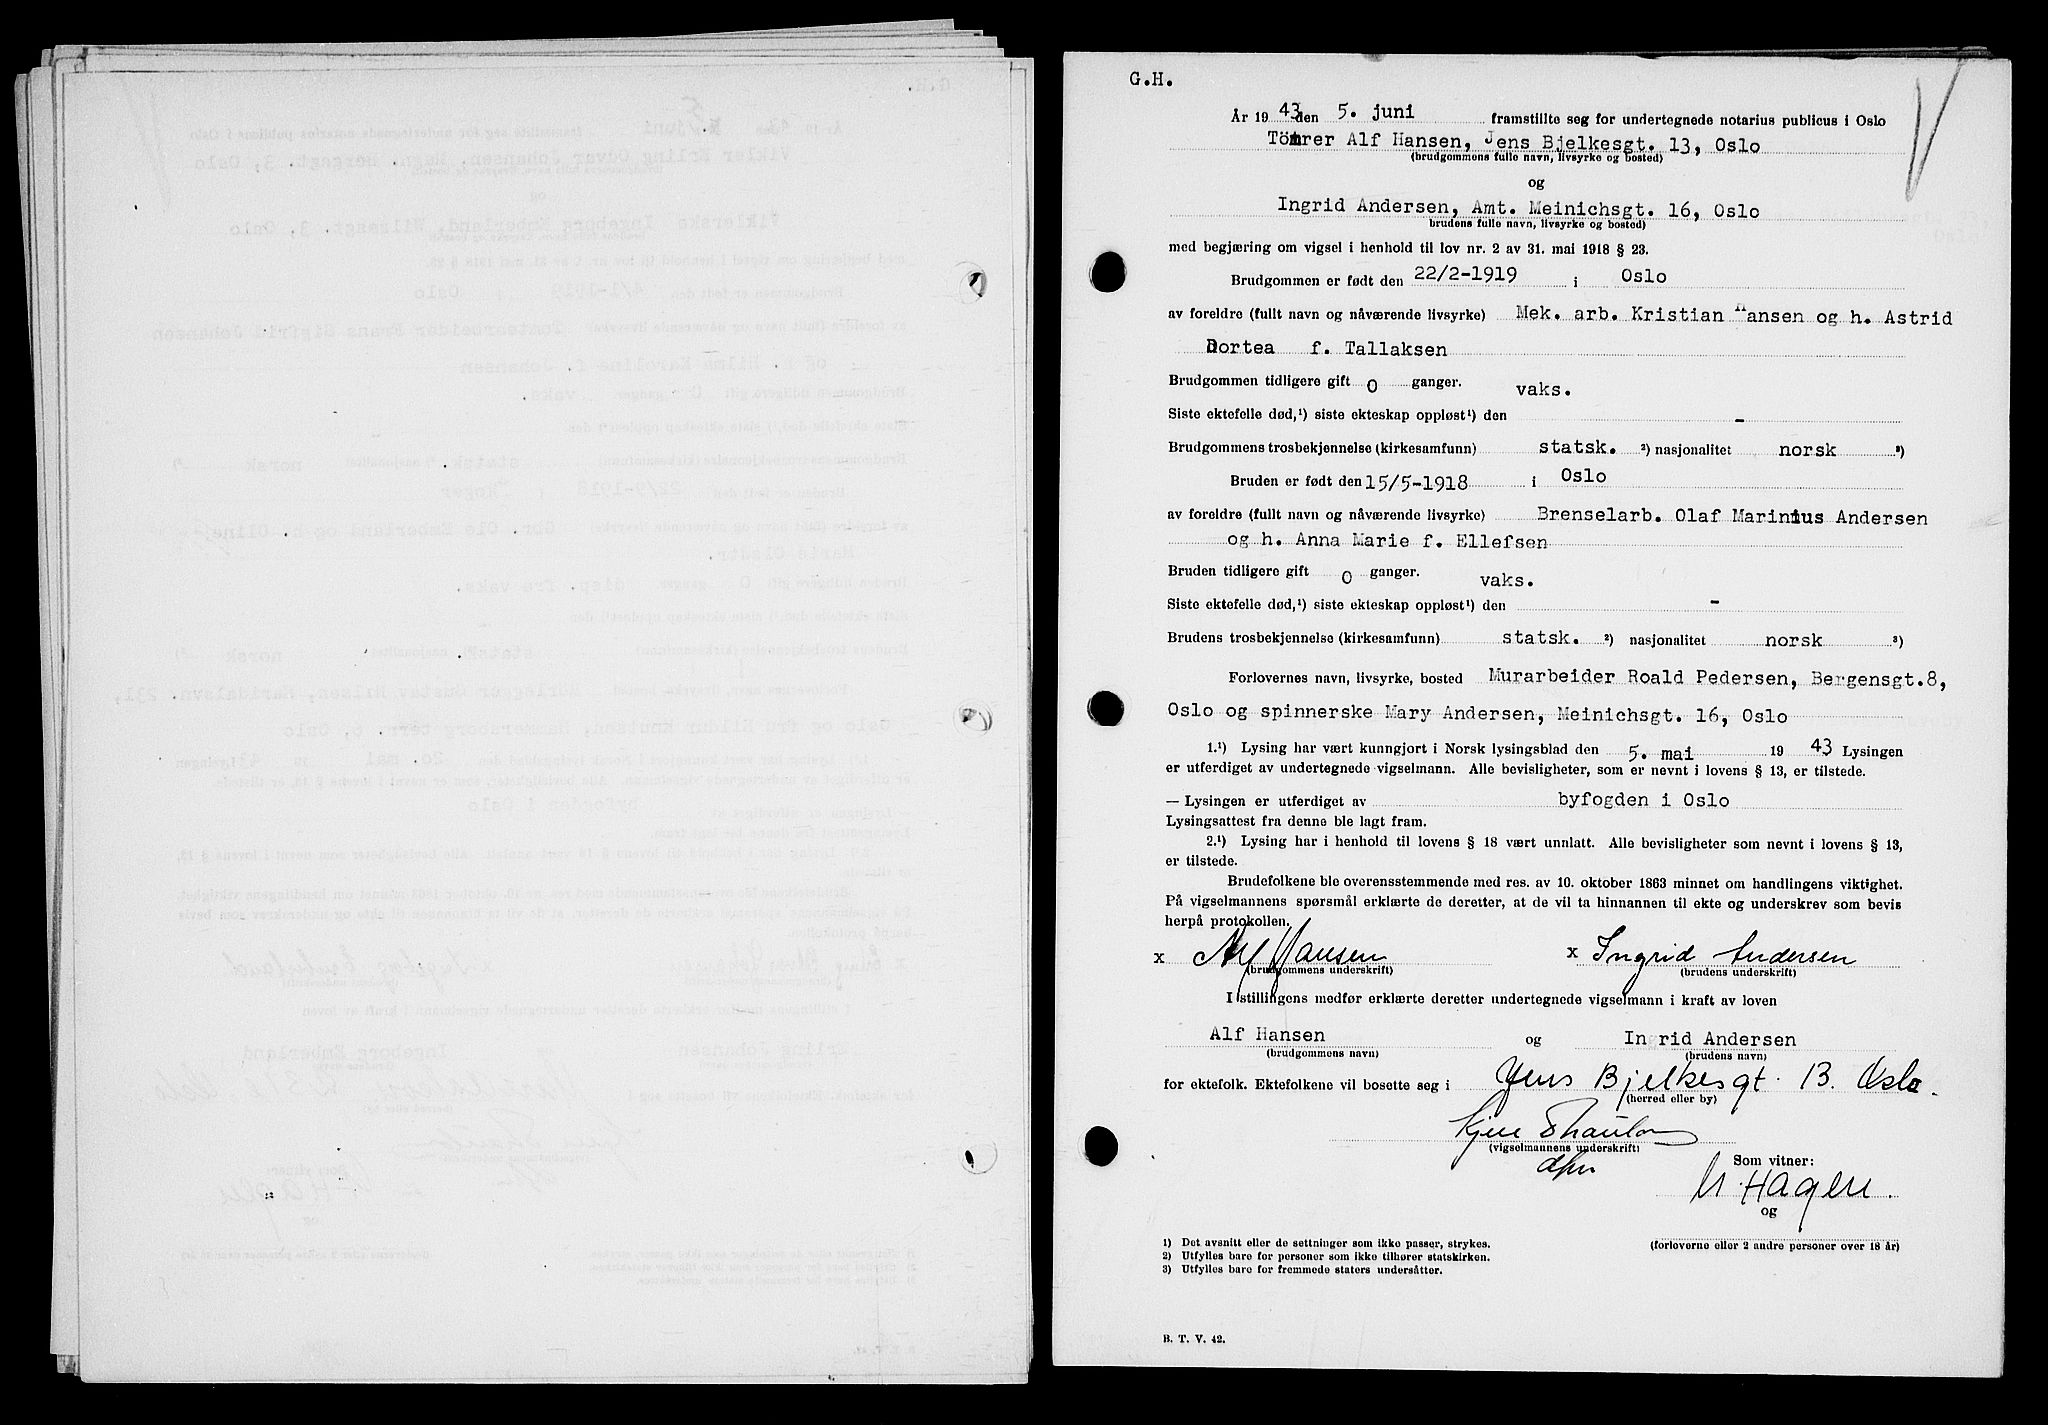 G.H.
År 19 43 den 5. juni framstillte seg for undertegnede notarius publicus i Oslo
Tömrer Alf Hansen, Jens Bjelkesgt. 13, Oslo
(brudgommens fulle navn, livsyrke og bosted)
og
Ingrid Andersen, Amt. Meinichsgt. 16, Oslo
(brudens fulle navn, livsyrke og bosted)
med begjæring om vigsel i henhold til lov nr. 2 av 31. mai 1918 § 23.
Brudgommen er født den 22/2-1919 i Oslo
av foreldre (fullt navn og nåværende livsyrke) Mek. arb. Kristian Hansen og h. Astrid
Dortea f. Tallaksen
Brudgommen tidligere gift 0 ganger. vaks.
Siste ektefelle død,¹) siste ekteskap oppløst¹) den -
Brudgommens trosbekjennelse (kirkesamfunn) statsk. ²) nasjonalitet norsk ³)
Bruden er født den 15/5-1918 i Oslo
av foreldre (fullt navn og nåværende livsyrke) Brenselarb. Olaf Marinius Andersen
og h. Anna Marie f. Ellefsen
Bruden tidligere gift 0 ganger. vaks.
Siste ektefelle død,¹) siste ekteskap oppløst¹) den -
Brudens trosbekjennelse (kirkesamfunn) statsk. ²) nasjonalitet norsk ³)
Forlovernes navn, livsyrke, bosted Murarbeider Roald Pedersen, Bergensgt.8,
Oslo og spinnerske Mary Andersen, Meinichsgt. 16, Oslo
1.¹) Lysing har vært kunngjort i Norsk lysingsblad den 5. mai 19 43 Lysingen
er utferdiget av undertegnede vigselmann. Alle bevisligheter, som er nevnt i lovens § 13, er tilstede.
— Lysingen er utferdiget av byfogden i Oslo
Lysingsattest fra denne ble lagt fram.
2.¹) Lysing har i henhold til lovens § 18 vært unnlatt. Alle bevisligheter som nevnt i lovens § 13,
er tilstede.
Brudefolkene ble overensstemmende med res. av 10. oktober 1863 minnet om handlingens viktighet.
På vigselmannens spørsmål erklærte de deretter, at de vil ta hinnannen til ekte og underskrev som bevis
herpå protokollen.
x Alf Hansen x Ingrid Andersen
(brudgommens underskrift) (brudens underskrift)
I stillingens medfør erklærte deretter undertegnede vigselmann i kraft av loven
Alf Hansen og Ingrid Andersen
(brudgommens navn) (brudens navn)
for ektefolk. Ektefolkene vil bosette seg i Jens Bjelkesgt. 13. Oslo.
(herred eller by)
(vigselmannens underskrift)
Som vitner:
Hagen.
og
(forloverne eller 2 andre personer over 18 år)
1) Det avsnitt eller de settninger som ikke passer, strykes.
2) Utfylles bare for personer som ikke tilhører statskirken.
3) Utfylles bare for fremmede staters undersåtter.
B. T. V. 42.